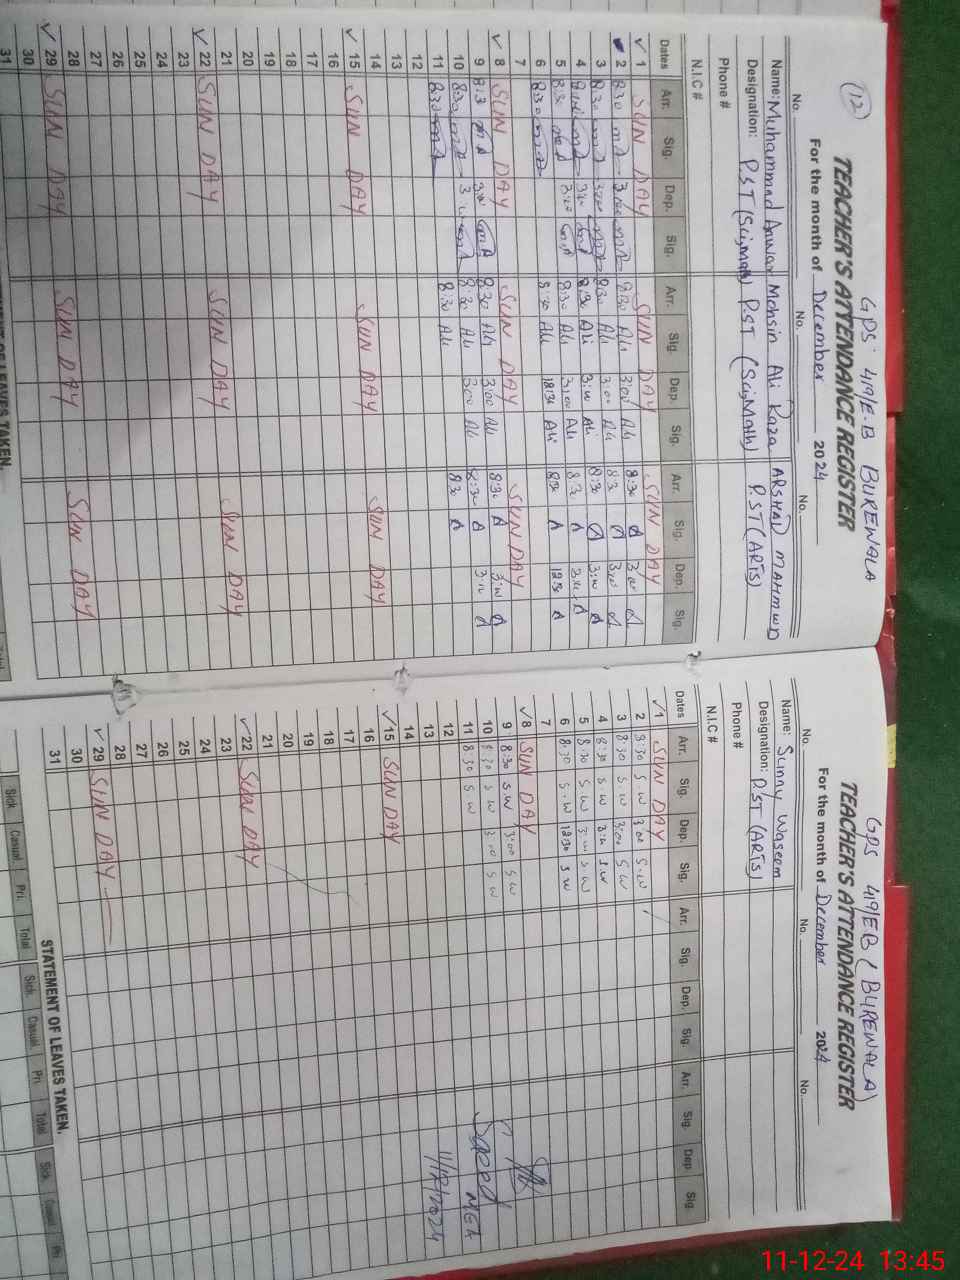 (12)
GPS 419/E.B BUREWALA
TEACHER'S ATTENDANCE REGISTER
For the month of December 2024
No. No. No.
Name: Muhammad Anwar Mohsin Ali Raza ARSHAD MAHMUD
Designation: P.ST (Sci,Math) P.ST (Sci,Math) P.ST (ARTS)
Phone #
N.I.C #
Dates Arr. Sig. Dep. Sig. Arr. Sig. Dep. Sig. Arr. Sig. Dep. Sig.
1 SUN DAY SUN DAY SUN DAY
2 8:30 3:00 8:30 Ali 3:00 Ali 8:30 A 3:00 A
3 8:30 3:00 8:30 Ali 3:00 Ali 8:30 A 3:00 A
4 8:30 Ali 3:00 Ali 8:30 A 3:00 A
5 8:30 3:00 8:30 Ali 3:00 Ali 8:30 A 3:00 A
6 8:30 8:30 Ali Ali 8:30 A 12:30 A
7
8 SUN DAY SUN DAY SUN DAY
9 8:30 3:00 8:30 Ali 3:00 Ali 8:30 A 3:00 A
10 8:30 3:00 8:30 Ali 3:00 Ali 8:30 A 3:00 A
11 8:30 8:30 Ali 8:30 A
12
13
14
15 SUN DAY SUN DAY SUN DAY
16
17
18
19
20
21
22 SUN DAY SUN DAY SUN DAY
23
24
25
26
27
28
29 SUN DAY SUN DAY SUN DAY
30
31
STATEMENT OF LEAVES TAKEN.
GPS 419/EB (BUREWALA)
TEACHER'S ATTENDANCE REGISTER
For the month of December 2024
No. No. No.
Name: Sunny Waseem
Designation: P.ST (ARTS)
Phone #
N.I.C #
Dates Arr. Sig. Dep. Sig. Arr. Sig. Dep. Sig. Arr. Sig. Dep. Sig.
1 SUN DAY
2 8:30 S.W 3:00 S.W
3 8:30 S.W 3:00 S.W
4 8:30 S.W 3:00 S.W
5 8:30 S.W 3:00 S.W
6 8:30 S.W 12:30 S.W
7
8 SUN DAY
9 8:30 S.W 3:00 S.W
10 8:30 S.W 3:00 S.W
11 8:30 S.W
12
13
14
15 SUN DAY
16
17
18
19
20
21
22 SUN DAY
23
24
25
26
27
28
29 SUN DAY
30
31
Saeed MEA
11/12/2024
STATEMENT OF LEAVES TAKEN.
Sick Casual Pri. Total Sick. Casual. Pri Total Sick Casual Pri
11-12-24 13:45